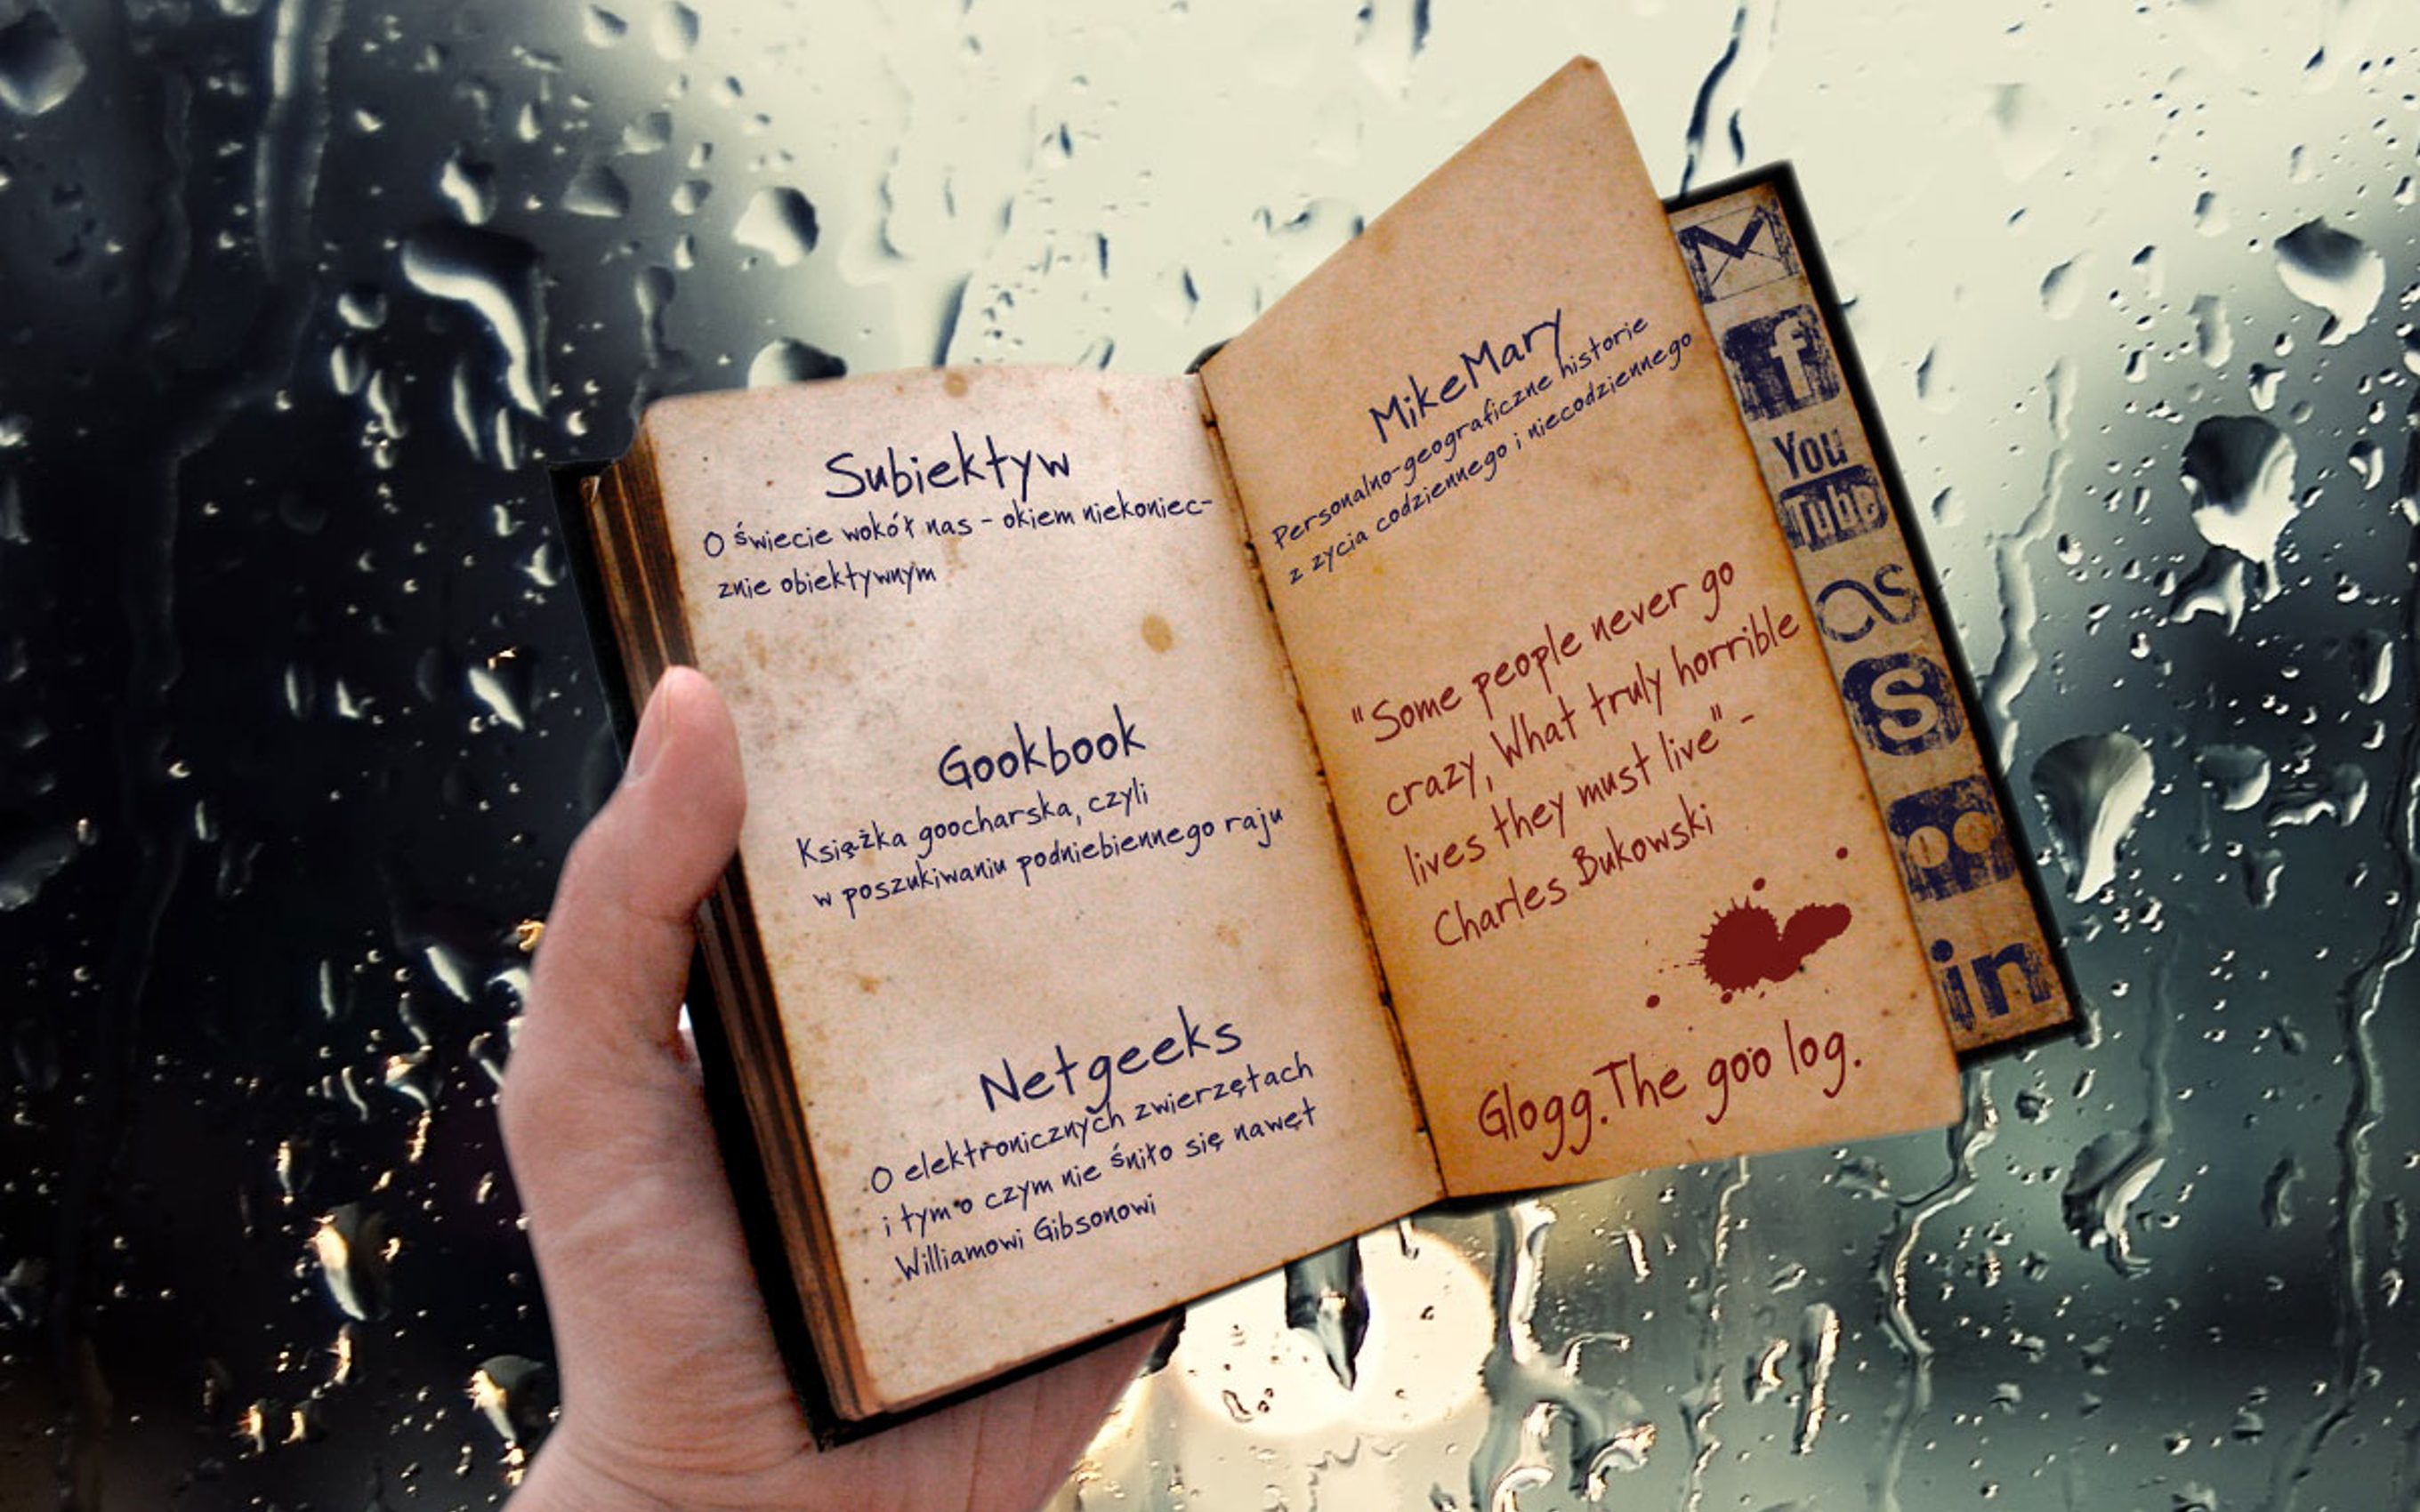 Subiektyw
O świecie wokół nas - okiem niekoniec-
znie obiektywnym
Gookbook
Książka goocharska, czyli
w poszukiwaniu podniebiennego raju
Netgeeks
O elektronicznych zwierzętach
i tym o czym nie śniło się nawęt
Williamowi Gibsonowi
MikeMary
Personalno-geograficzne historie
z zycia codziennego i niecodziennego
"Some people never go
crazy, What truly horrible
lives they must live" -
Charles Bukowski
Glogg.The goo log.
M
f
You
Tube
as
S
in